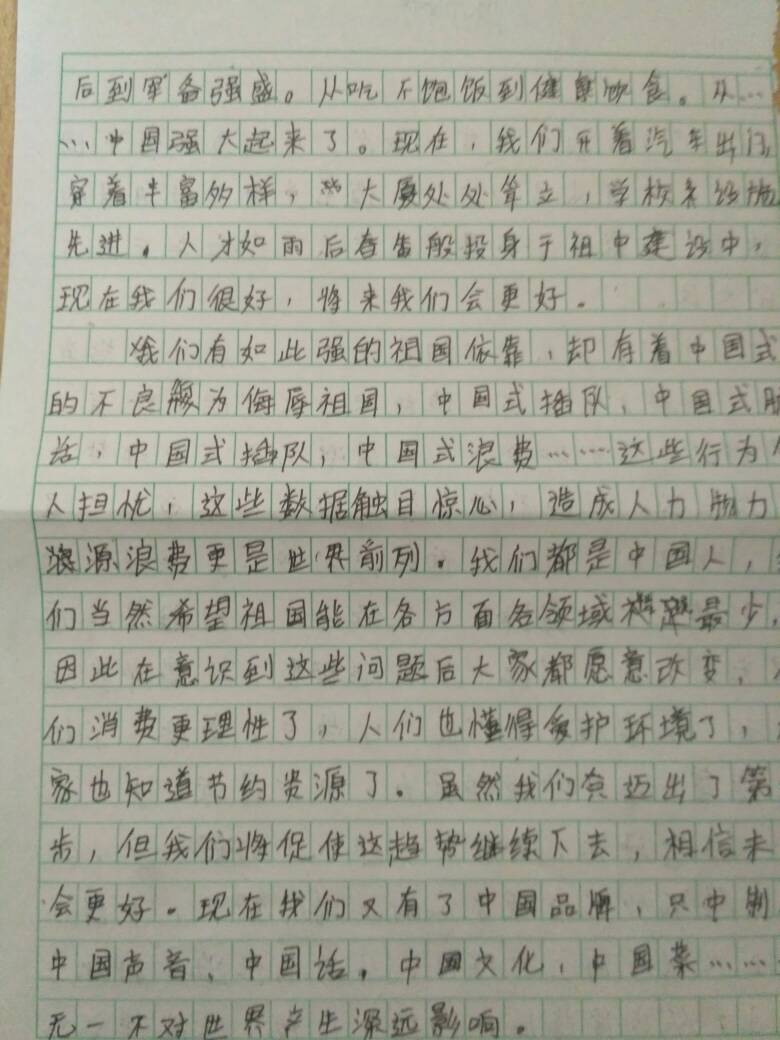 后到军备强盛。从吃不饱饭到健康饮食。从……
……中国强大起来了。现在，我们开着汽车出门，
穿着丰富多样，大厦处处耸立，学校系设施
先进。人才如雨后春笋般投身于祖中建设中，
现在我们很好，将来我们会更好。
我们有如此强的祖国依靠，却存着中国式
的不良行为侮辱祖国，中国式插队，中国式
话，中国式插队，中国式浪费……这些行为
人担忧，这些数据触目惊心，造成人力物力
源浪费更是世界前列。我们都是中国人，
们当然希望祖国能在各方面各领域最少，
因此在意识到这些问题后大家都愿意改变，
们消费更理性了，人们也懂得爱护环境了，
家也知道节约资源了。虽然我们迈出了第
步，但我们将促使这趋势继续下去，相信未
会更好。现在我们又有了中国品牌，只中制
中国声音，中国话，中国文化，中国菜……
无一不对世界产生深远影响。